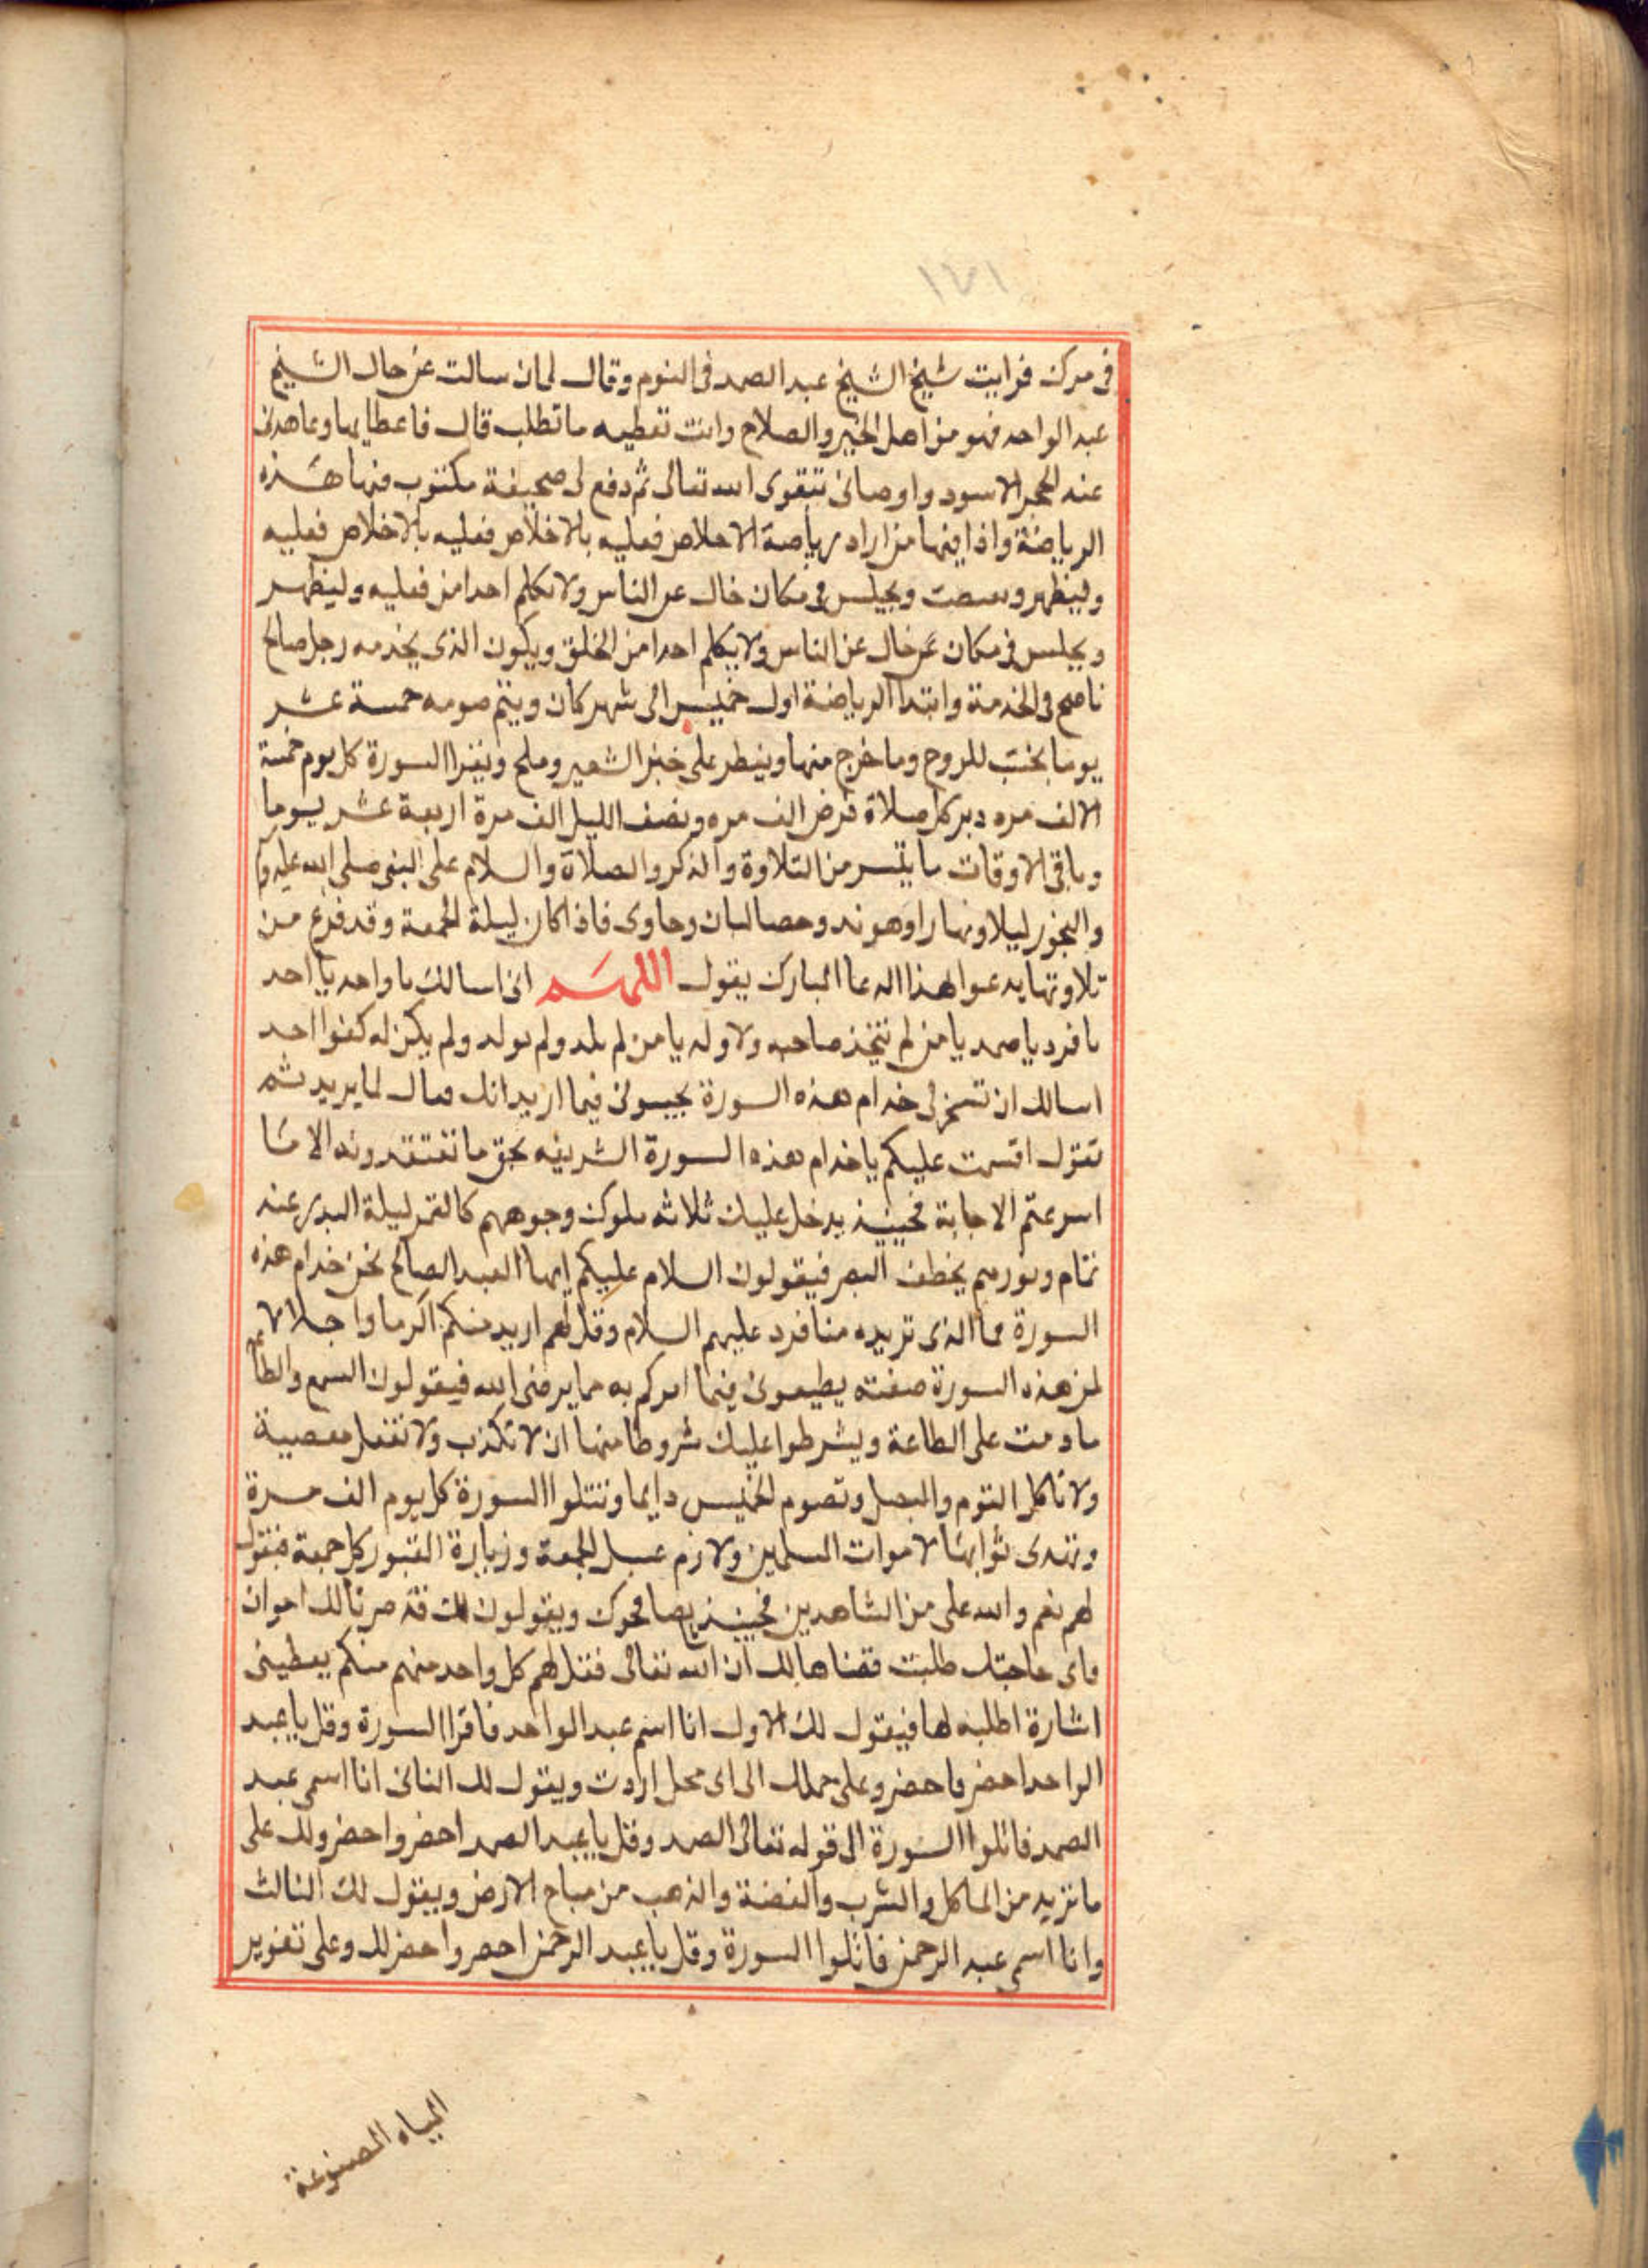 ١٧١
فى مرك فرايت شيخ الشيخ عبد الصمد فى النوم وقال لى ان سالت عن حال الشيخ
عبد الواحد فهو من اهل الخير والصلاح وانت تعطيه ما تطلب قال فاعطايها وعاهدنى
عند الحجر الاسود واوصانى بتقوى الله تعالى ثم دفع لى صحيفة مكتوب فيها هذه
الرياضة واذا فيها من اراد رياضة الاخلاص فعليه بالاخلاص فعليه بالاخلاص فعليه
وليظهر ويجلس فى مكان خال عن الناس ولا يكلم احدا من فعليه وليظهر
ويجلس فى مكان خال عن الناس ولا يكلم احدا من الخلق ويكون الذى يخدمه رجل صالح
ناصح فى الخدمة وابتدا الرياضة اول خميس الى شهر كان ويتم صومه خمسة عشر
يوما بجنب للروح وما خرج منها ويفطر على خبز الشعير وملح ويقرا السورة كل يوم خمسة
الالف مره دبر كل صلاة فرض الف مره ونصف الليل الف مرة اربعة عشر يوما
وباقى الاوقات ما يتسر من التلاوة والذكر والصلاة والسلام على النبى صلى الله عليه و
والبخور ليلا ونهارا وهو ند وحصالبان وجاوى فاذا كان ليلة الجمعة وقد فرغ من
تلاوتها يدعوا هذا الدعا المبارك يقول اللهم انى اسالك يا واحد يا احد
يا فرد يا صمد يا من لم يتخذ صاحبه ولا ولد يا من لم يلد ولم يولد ولم يكن له كفوا احد
اسالك ان تسخر لى خدام هذه السورة يجيبونى فيما اريد انك فعال لما يريد ثم
تقول اقسمت عليكم يا خدام هذه السورة الشريفه بحق ما تعتقدونه الا ما
اسرعتم الاجابة فحينئذ يدخل عليك ثلاثه ملوك وجوههم كالقمر ليلة البدر عند
تمام ونورهم يخطف البصر فيقولون السلام عليكم ايها العبد الصالح نحن خدام هذه
السورة فما الذى تريده منا فرد عليهم السلام وقل لهم اريد منكم اكرما واجلالا
لمن هذه السورة صفته يطيعونى فيما امركم به مما يرضى الله فيقولون السمع والطاعة
ما دمت على الطاعة ويشرطوا عليك شروطا منها ان لا تكذب ولا تفعل معصية
ولا تاكل الثوم والبصل وتصوم الخميس دايما وتتلوا السورة كل يوم الف مرة
وتهدى ثوابها لاموات المسلمين ولازم غسل الجمعة وزيارة القبور كل جمعة فتقول
لهم نعم والله على من الشاهدين فحينئذ يصافحوك ويقولون لك قد صرنا لك اخوان
واى حاجتك طلبت قضناها لك ان الله تعالى فقل لهم كل واحد منهم منكم يعطينى
اشارة اطلبه لها فيقول لك الاول انا اسم عبد الواحد فاقرا السورة وقل يا عبد
الواحد احضر فاحضر وعلى حملك الى اى محل اردت ويقول لك الثانى انا اسمى عبد
الصمد فاتلوا السورة الى قوله تعالى الصمد وقل يا عبد الصمد احضر واحضر ولك على
ما تزيد من الماكل والشرب والفضة والذهب من مباح الارض ويقول لك الثالث
وانا اسمى عبد الرحمن فاتلوا السورة وقل يا عبد الرحمن احضر واحضر لك وعلى تغوير
المياه المصنوعة